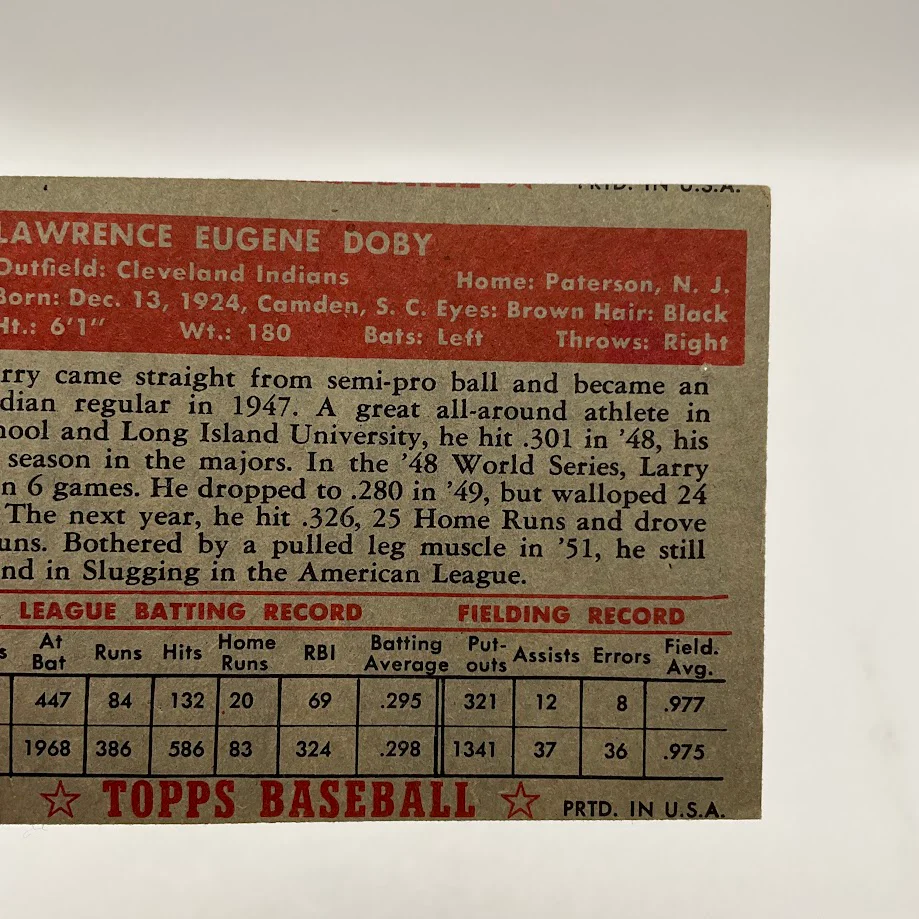 PRTD. IN U.S.A.
LAWRENCE EUGENE DOBY
Outfield: Cleveland Indians Home: Paterson, N. J.
Born: Dec. 13, 1924, Camden, S. C. Eyes: Brown Hair: Black
Ht.: 6'1" Wt.: 180 Bats: Left Throws: Right
rry came straight from semi-pro ball and became an
dian regular in 1947. A great all-around athlete in
hool and Long Island University, he hit .301 in '48, his
season in the majors. In the '48 World Series, Larry
n 6 games. He dropped to .280 in '49, but walloped 24
The next year, he hit .326, 25 Home Runs and drove
uns. Bothered by a pulled leg muscle in '51, he still
nd in Slugging in the American League.
LEAGUE BATTING RECORD FIELDING RECORD
s At Bat Runs Hits Home Runs RBI Batting Average Put-outs Assists Errors Field. Avg.
447 84 132 20 69 .295 321 12 8 .977
1968 386 586 83 324 .298 1341 37 36 .975
TOPPS BASEBALL PRTD. IN U.S.A.